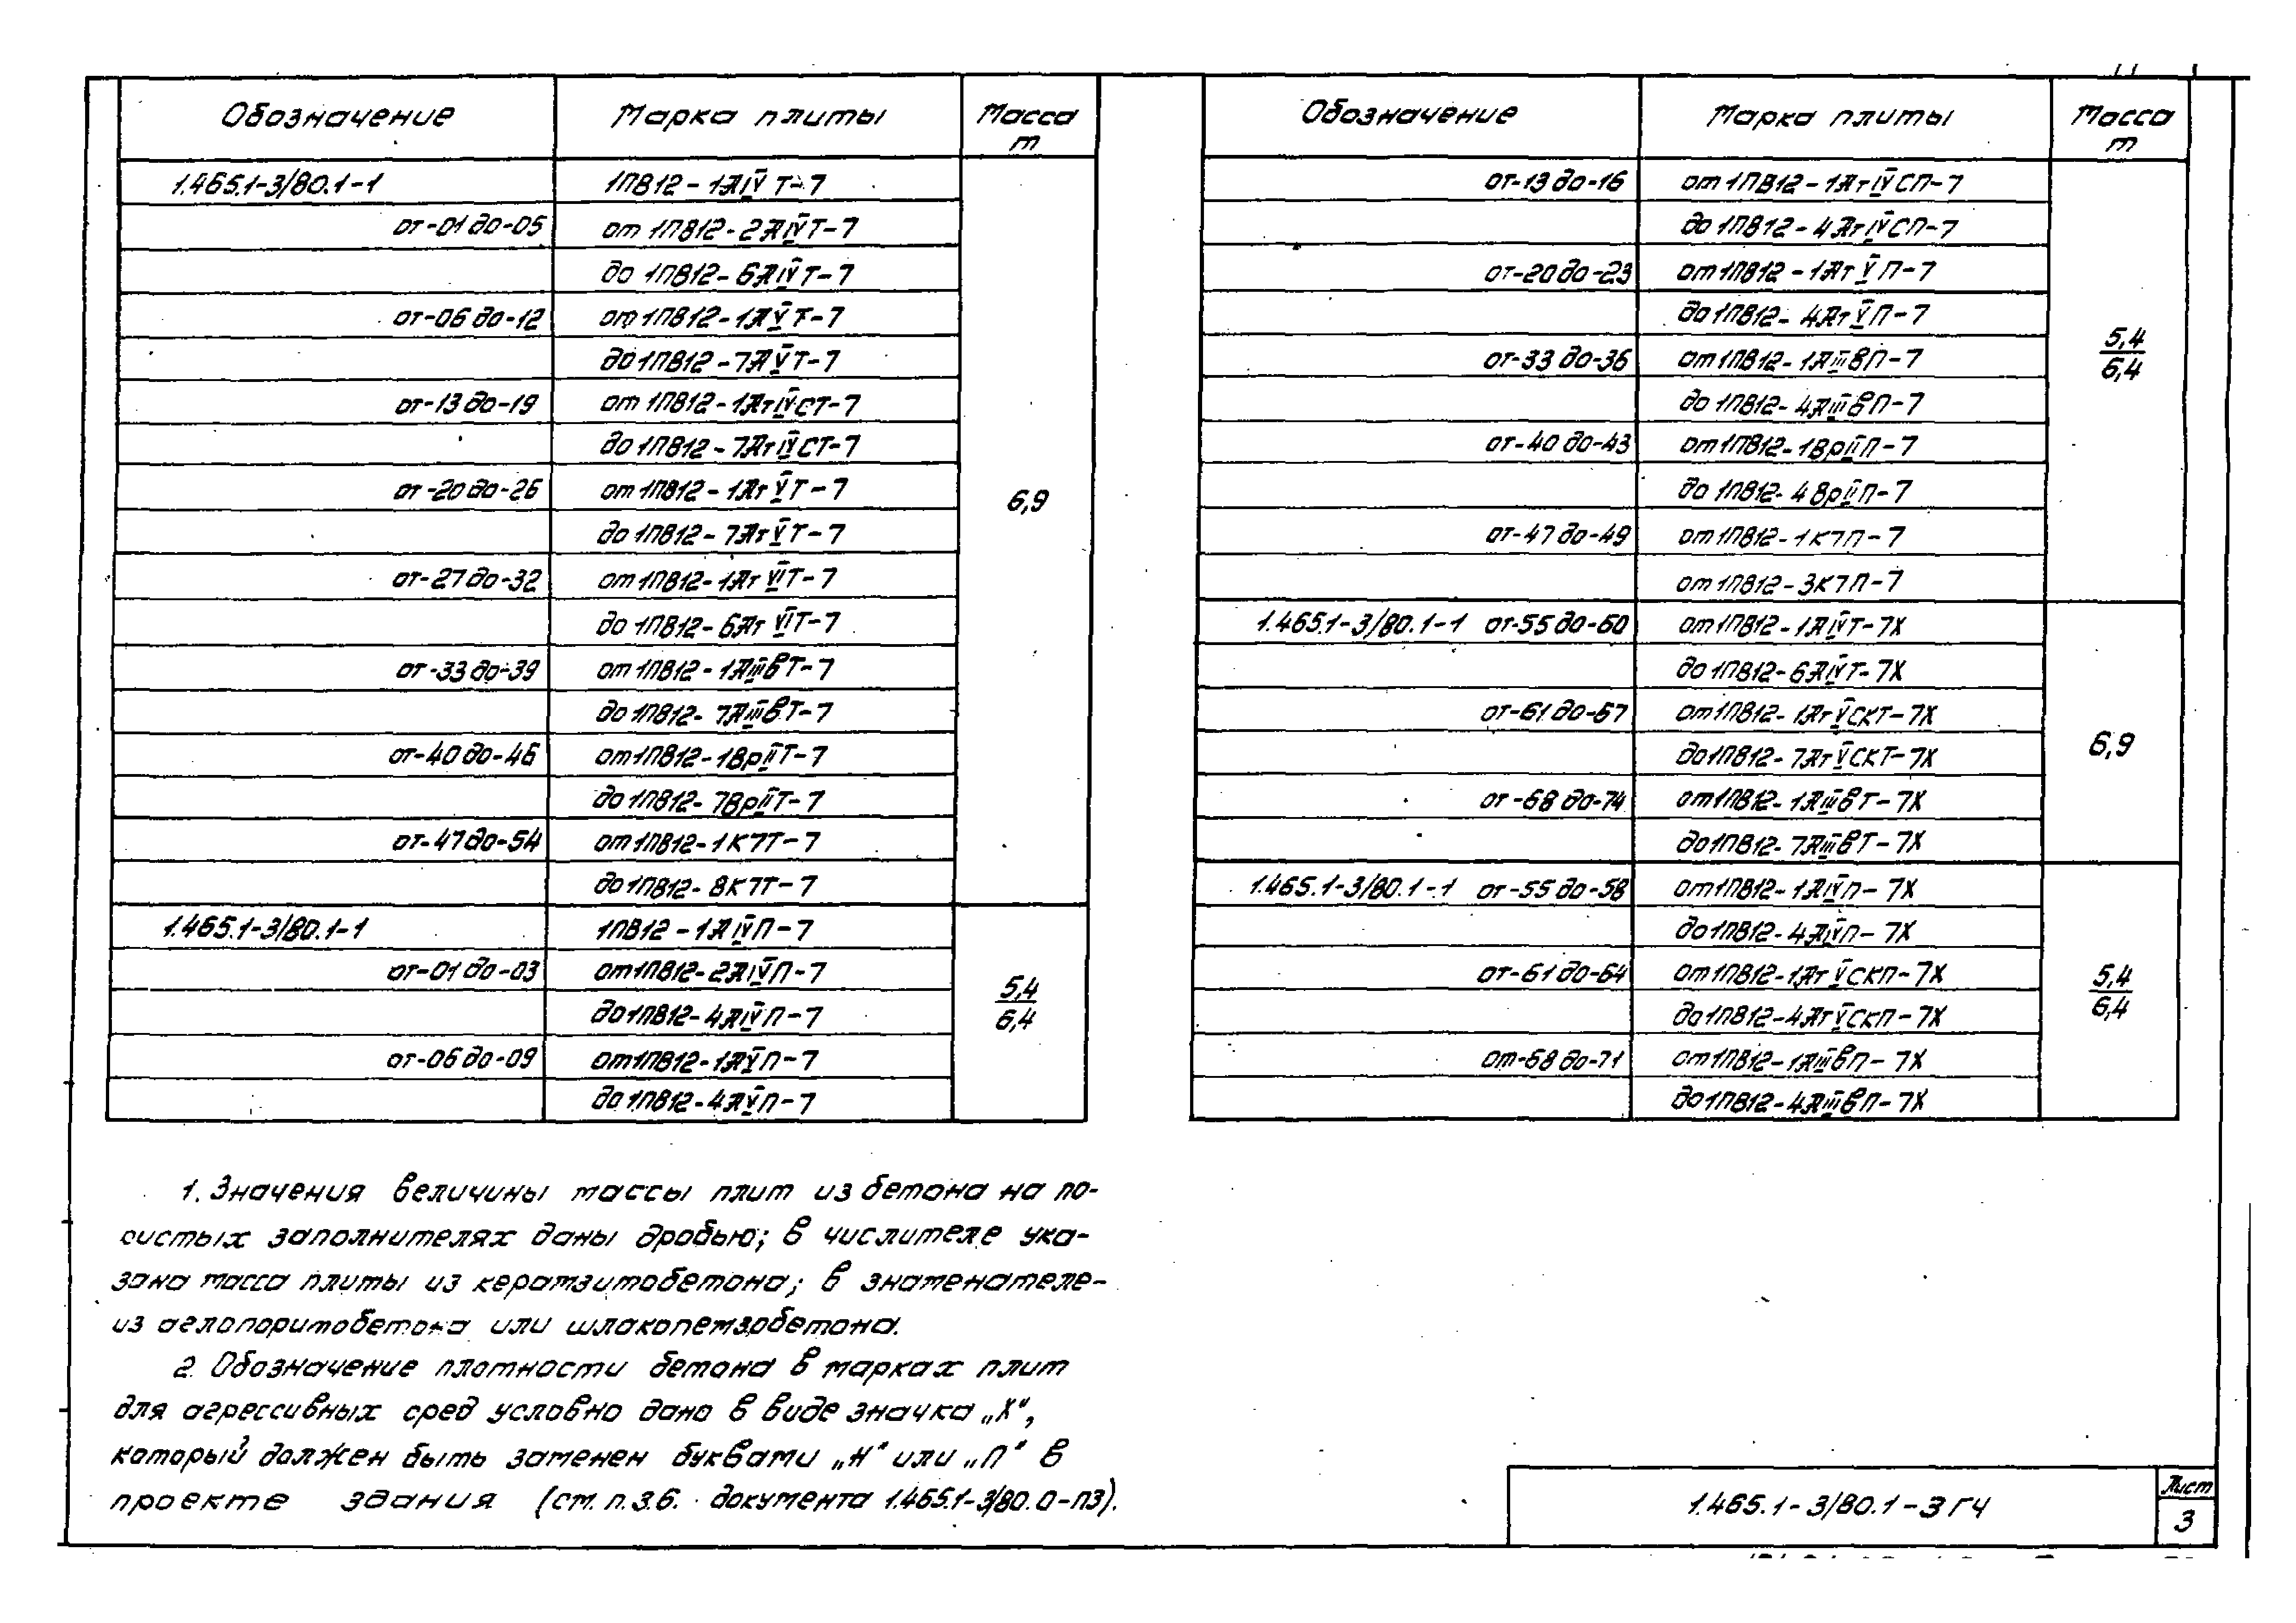 Обозначение Марка плиты Масса т
1.465.1-3/80.1-1 1ПВ12-1АIVТ-7
от-01 до-05 от 1ПВ12-2АIVТ-7
до 1ПВ12-6АIVТ-7
от-06 до-12 от 1ПВ12-1АVТ-7
до 1ПВ12-7АVТ-7
от-13 до-19 от 1ПВ12-1АтIVСТ-7
до 1ПВ12-7АтIVСТ-7
от-20 до-26 от 1ПВ12-1АтVТ-7
до 1ПВ12-7АтVТ-7
от-27 до-32 от 1ПВ12-1АтVIТ-7
до 1ПВ12-6АтVIТ-7
от-33 до-39 от 1ПВ12-1АIIIвТ-7
до 1ПВ12-7АIIIвТ-7
от-40 до-46 от 1ПВ12-1ВрIIТ-7
до 1ПВ12-7ВрIIТ-7
от-47 до-54 от 1ПВ12-1К7Т-7
до 1ПВ12-8К7Т-7
6,9
1.465.1-3/80.1-1 1ПВ12-1АIVП-7
от-01 до-03 от 1ПВ12-2АIVП-7
до 1ПВ12-4АIVП-7
от-06 до-09 от 1ПВ12-1АVП-7
до 1ПВ12-4АVП-7
5,4
6,4
Обозначение Марка плиты Масса т
от-13 до-16 от 1ПВ12-1АтIVСП-7
до 1ПВ12-4АтIVСП-7
от-20 до-23 от 1ПВ12-1АтVП-7
до 1ПВ12-4АтVП-7
от-33 до-36 от 1ПВ12-1АIIIвП-7
до 1ПВ12-4АIIIвП-7
от-40 до-43 от 1ПВ12-1ВрIIП-7
до 1ПВ12-4ВрIIП-7
от-47 до-49 от 1ПВ12-1К7П-7
от 1ПВ12-3К7П-7
5,4
6,4
1.465.1-3/80.1-1 от-55 до-60 от 1ПВ12-1АIVТ-7Х
до 1ПВ12-6АIVТ-7Х
от-61 до-67 от 1ПВ12-1АтVСКТ-7Х
до 1ПВ12-7АтVСКТ-7Х
от-68 до-74 от 1ПВ12-1АIIIвТ-7Х
до 1ПВ12-7АIIIвТ-7Х
6,9
1.465.1-3/80.1-1 от-55 до-58 от 1ПВ12-1АIVП-7Х
до 1ПВ12-4АIVП-7Х
от-61 до-64 от 1ПВ12-1АтVСКП-7Х
до 1ПВ12-4АтVСКП-7Х
от-68 до-71 от 1ПВ12-1АIIIвП-7Х
до 1ПВ12-4АIIIвП-7Х
5,4
6,4
1. Значения величины массы плит из бетона на по-
ристых заполнителях даны дробью; в числителе ука-
зана масса плиты из керамзитобетона; в знаменателе-
из аглопоритобетона или шлакопемзобетона.
2. Обозначение плотности бетона в марках плит
для агрессивных сред условно дано в виде значка „Х",
который должен быть заменен буквами „Н" или „П" в
проекте здания (см. п.3.6. документа 1.465.1-3/80.0-ПЗ).
1.465.1-3/80.1-3ГЧ
Лист
3